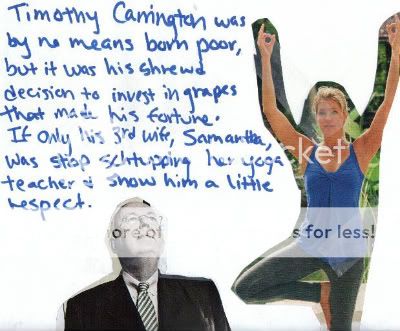 Timothy Carrington was
by no means born poor,
but it was his shrewd
decision to invest in grapes
that made his fortune.
If only his 3rd wife, Samantha,
was stop schtupping her yoga
teacher & show him a little
respect.
cket
ore of
s for less!